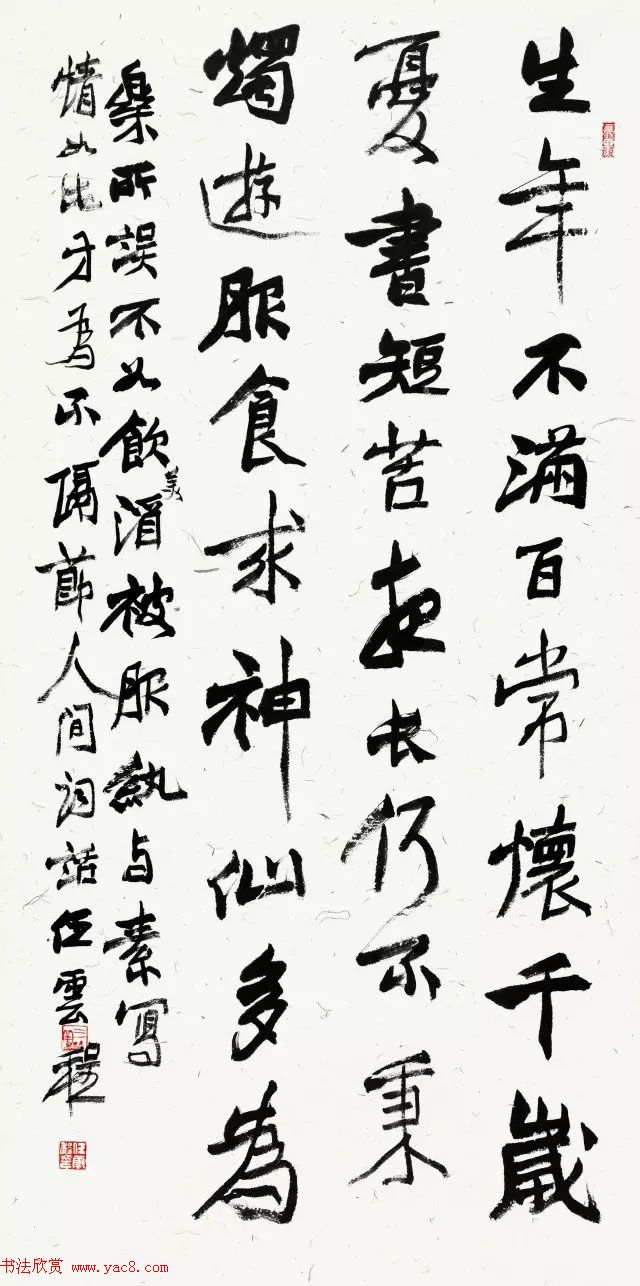 生年不满百常懷千歲
憂書短苦夜长何不秉
燭遊服食求神仙多為
樂所誤不如飲美酒被服紈与素寫
情如此方為不隔節人间词話任雲程
书法欣赏 www.yac8.com